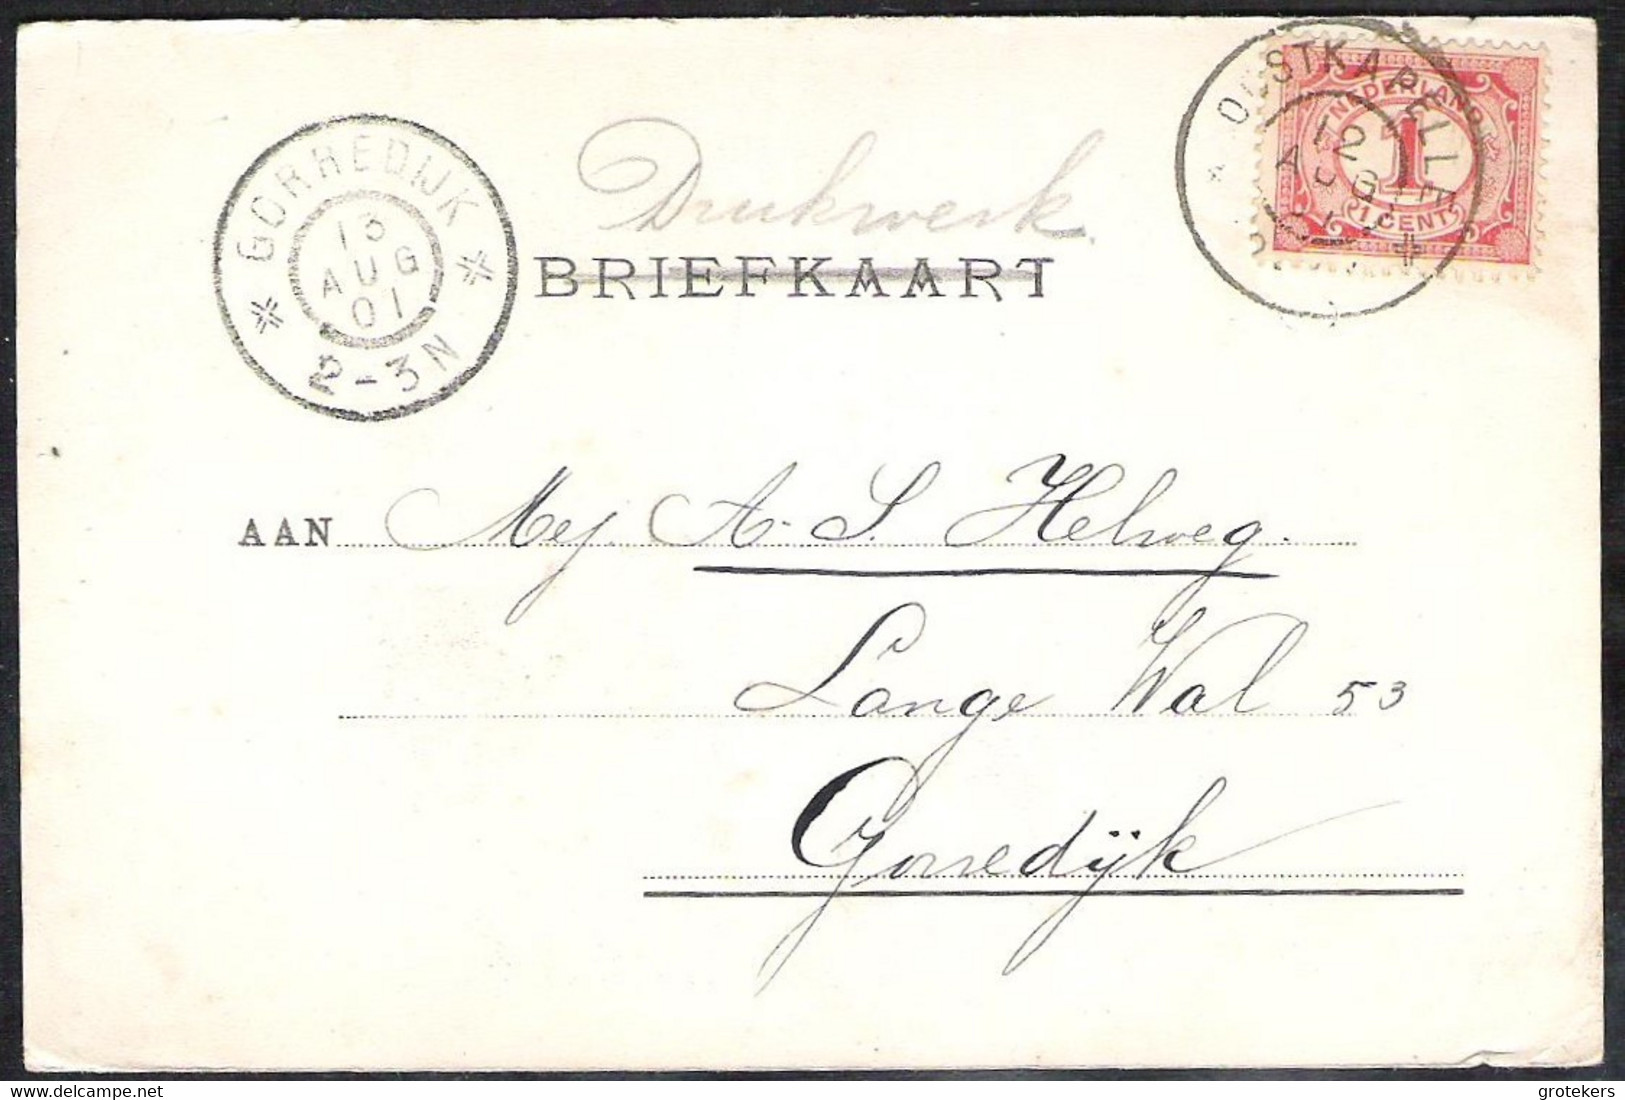 Drukwerk.
BRIEFKAART
GORREDIJK
13
AUG
01
2-3N
OOSTKAPELLE
12
AUG
NEDERLAND
1
1 CENT
AAN Mej. A. S. Helweg.
Lange Wal 53
Gorredijk
© DELCAMPE
grotekers